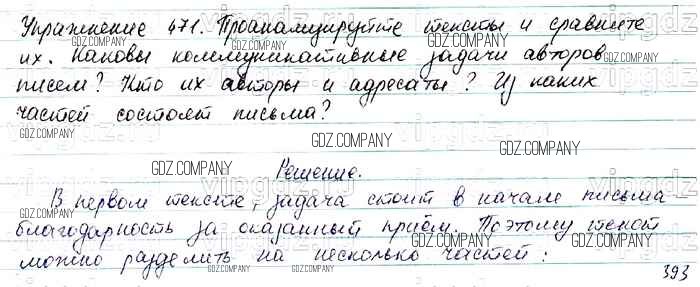 Упражнение 471. Проанализируйте тексты и сравните
их. Каковы коммуникативные задачи авторов
писем? Кто их авторы и адресаты? Из каких
частей состоят письма?
Решение.
В первом тексте, задача стоит в начале письма
благодарность за оказанный приём. Поэтому текст
можно разделить на несколько частей:
393